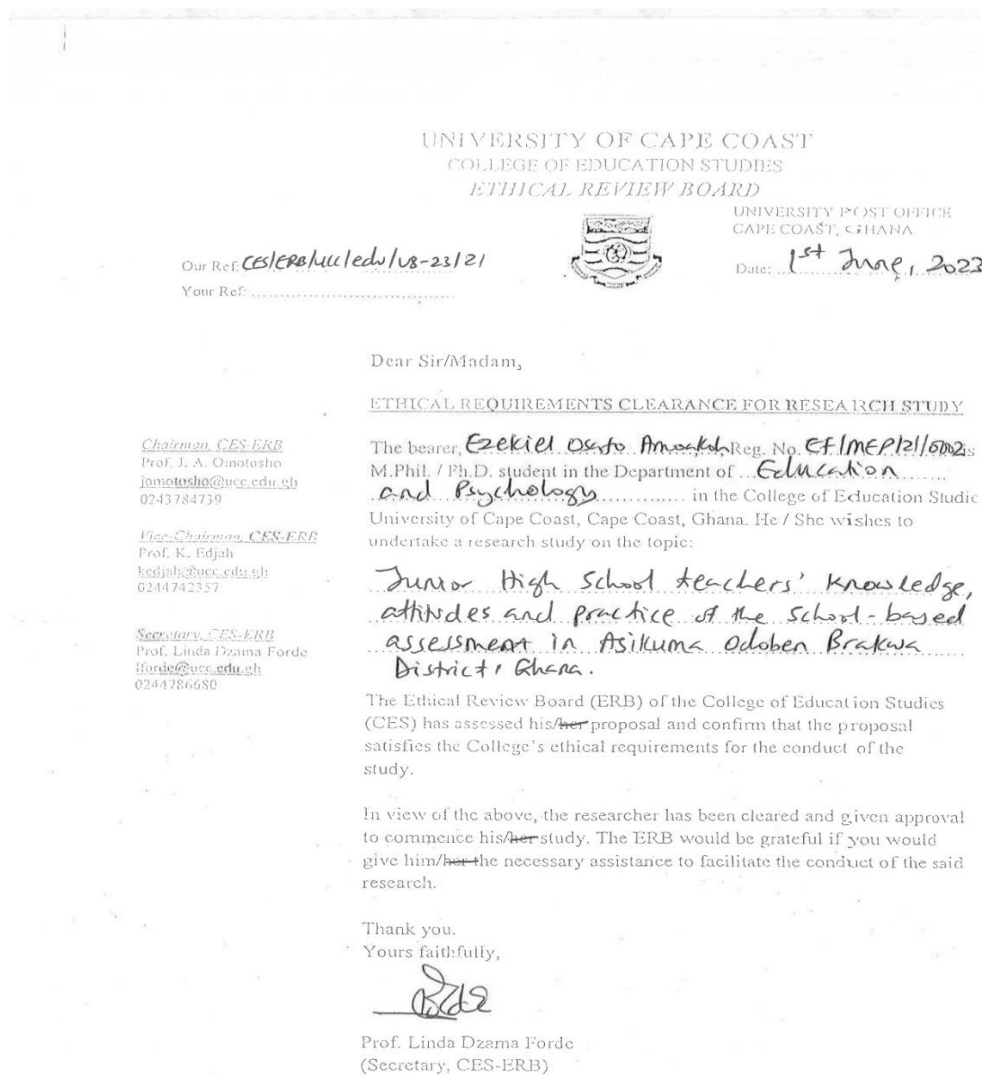 UNIVERSITY OF CAPE COAST
COLLEGE OF EDUCATION STUDIES
ETHICAL REVIEW BOARD
UNIVERSITY POST OFFICE
CAPE COAST, GHANA
Our Ref: CES/ERB/ucc/edu/v8-23/21
Date: 1st June, 2023
Your Ref:
Dear Sir/Madam,
ETHICAL REQUIREMENTS CLEARANCE FOR RESEARCH STUDY
Chairman, CES-ERB
Prof. J. A. Omotosho
jomotosho@ucc.edu.gh
0243784739
Vice-Chairman, CES-ERB
Prof. K. Edjah
kedjah@ucc.edu.gh
0244742357
Secretary, CES-ERB
Prof. Linda Dzama Forde
lforde@ucc.edu.gh
0244786680
The bearer, Ezekiel Reg. No. EF/MEP/21/0002 is
M.Phil. / Ph.D. student in the Department of Education
and Psychology in the College of Education Studie
University of Cape Coast, Cape Coast, Ghana. He / She wishes to
undertake a research study on the topic:
Junior High School teachers' knowledge,
attitudes and practice of the school-based
assessment in Asikuma Odoben Brakwa
District, Ghana.
The Ethical Review Board (ERB) of the College of Education Studies
(CES) has assessed his/her proposal and confirm that the proposal
satisfies the College's ethical requirements for the conduct of the
study.
In view of the above, the researcher has been cleared and given approval
to commence his/her study. The ERB would be grateful if you would
give him/her the necessary assistance to facilitate the conduct of the said
research.
Thank you.
Yours faithfully,
Prof. Linda Dzama Forde
(Secretary, CES-ERB)